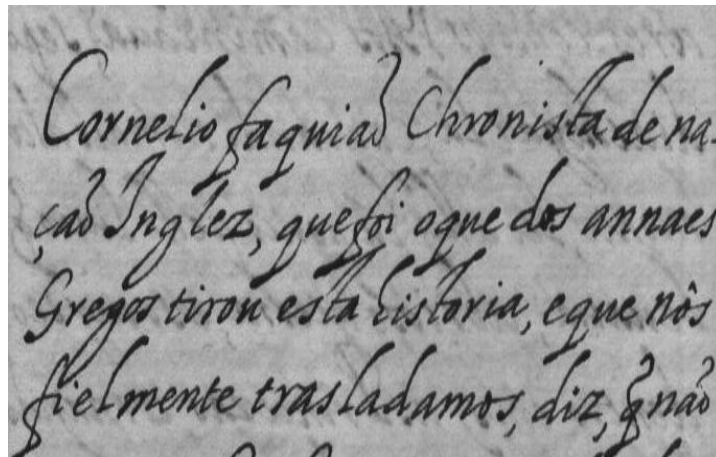 Cornelio faquiaõ Chronista de na-
çaõ Inglez, que foi o que dos annaes
Gregos tirou esta historia, e que nôs
fielmente trasladamos, diz, q̃ naõ